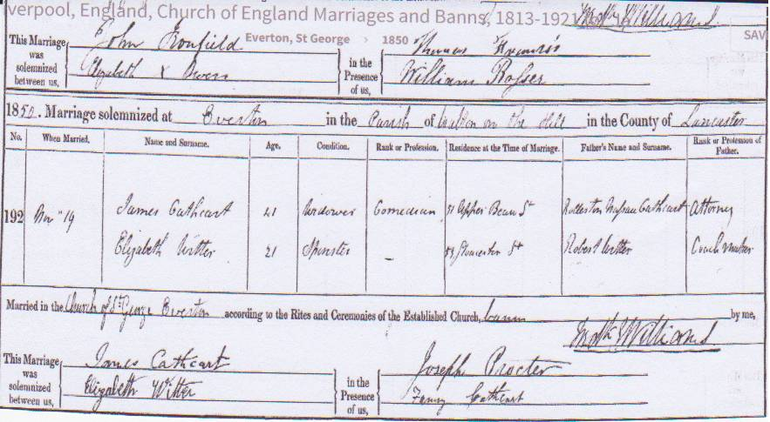 verpool, England, Church of England Marriages and Banns, 1813-1921
Everton, St George › 1850
SAV
This Marriage was solemnized between us,
John
Elizabeth X Owen
in the Presence of us,
Thomas
William Rosser
1850. Marriage solemnized at Everton in the Parish of Walton on the Hill in the County of Lancaster
No. When Married. Name and Surname. Age. Condition. Rank or Profession. Residence at the Time of Marriage. Father's Name and Surname. Rank or Profession of Father.
192 Nov 19 James Cathcart 41 Widower Comedian Upper Bean St Nassau Cathcart Attorney
Elizabeth Witter 21 Spinster Gloucester St Robert Witter Coach maker
Married in the Church of St George Everton according to the Rites and Ceremonies of the Established Church, banns by me,
Williams
This Marriage was solemnized between us,
James Cathcart
Elizabeth Witter
in the Presence of us,
Joseph Procter
Fanny Cathcart